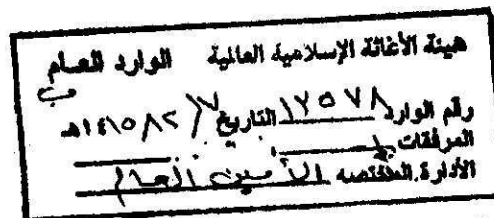 هيئة الأغاثة الإسلامية العالمية الوارد العام
ب
رقم الوارد ١٢٥٧٨ التاريخ ١٤١٥/٨/٢٧هـ
المرفقات
الأدارة المختصه الأمين العام